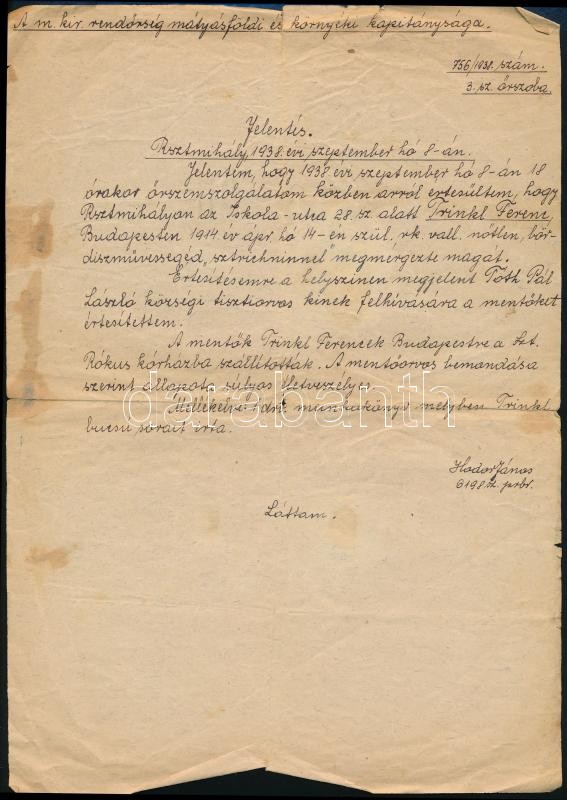 A m. kir. rendőrség mátyásföldi és környéki kapitánysága.
756/1938. szám.
3. sz. őrszoba.
Jelentés.
Rsztmihály, 1938. évi szeptember hó 8-án.
Jelentem, hogy 1938 évi szeptember hó 8-án 18
órakor őrszemszolgálatom közben arról értesültem, hogy
Rsztmihályon az Iskola-utca 28 sz. alatt Trinkl Ferenc,
Budapesten 1914 év ápr. hó 14-én szül., rk. vall. nőtlen, bőr-
díszművessegéd, sztrichninnel megmérgezte magát.
Értesítésemre a helyszínen megjelent Tóth Pál
László községi tisztiorvos kinek felhívására a mentőket
értesítettem.
A mentők Trinkl Ferencek Budapestre a Szt.
Rókus kórházba szállították. A mentőorvos bemondása
szerint állapota súlyos életveszélyes.
Mellékelve 1 drb. munkakönyv melyben Trinkl
búcsú sorait írta.
Hodor János
6198 sz. prbr.
Láttam.
darabanth